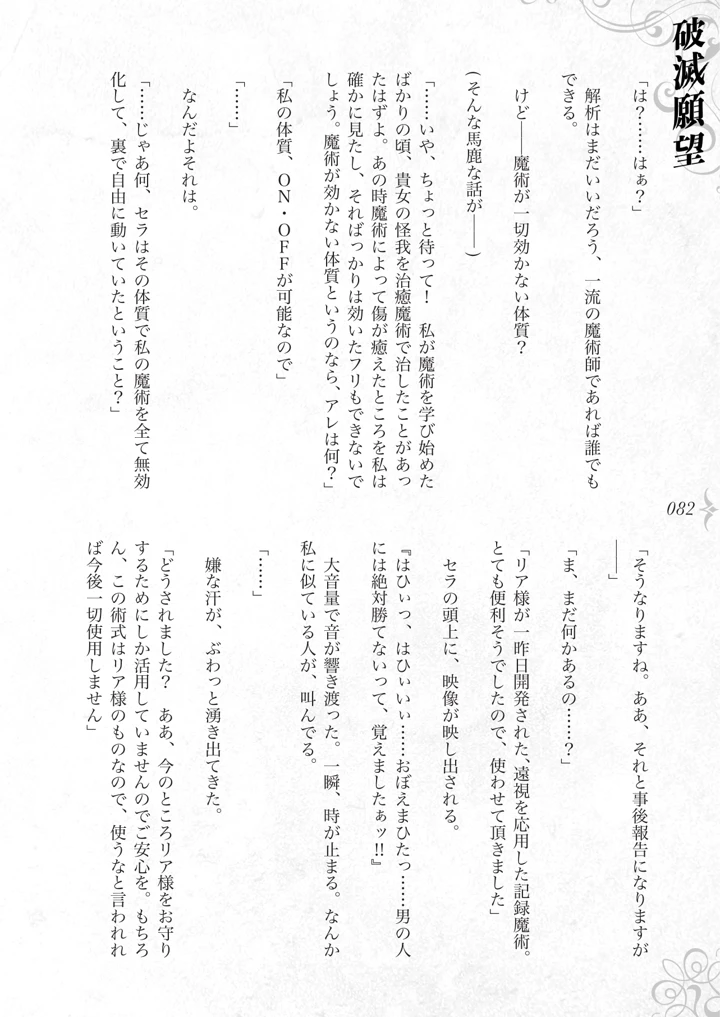 破滅願望
「は？……はぁ？」
　解析はまだいいだろう、一流の魔術師であれば誰でも
できる。
　けど――魔術が一切効かない体質？
（そんな馬鹿な話が――）
「……いや、ちょっと待って！　私が魔術を学び始めた
ばかりの頃、貴女の怪我を治癒魔術で治したことがあっ
たはずよ。あの時魔術によって傷が癒えたところを私は
確かに見たし、そればっかりは効いたフリもできないで
しょう。魔術が効かない体質というのなら、アレは何？」
「私の体質、ON・OFFが可能なので」
「……」
　なんだよそれは。
「……じゃあ何、セラはその体質で私の魔術を全て無効
化して、裏で自由に動いていたということ？」
082
「そうなりますね。ああ、それと事後報告になりますが
――」
「ま、まだ何かあるの……？」
「リア様が一昨日開発された、遠視を応用した記録魔術。
とても便利そうでしたので、使わせて頂きました」
　セラの頭上に、映像が映し出される。
『はひぃっ、はひぃぃぃ……おぼえまひたっ……男の人
には絶対勝てないって、覚えましたぁッ!!』
　大音量で音が響き渡った。一瞬、時が止まる。なんか
私に似ている人が、叫んでる。
「……」
　嫌な汗が、ぶわっと湧き出てきた。
「どうされました？　ああ、今のところリア様をお守り
するためにしか活用していませんのでご安心を。もちろ
ん、この術式はリア様のものなので、使うなと言われれ
ば今後一切使用しません」